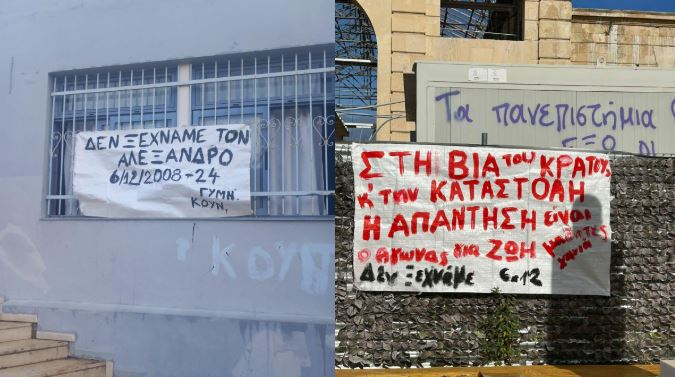 ΔΕΝ ΞΕΧΝΑΜΕ ΤΟΝ
ΑΛΕΞΑΝΔΡΟ
6/12/2008-24
ΓΥΜΝ.
ΚΟΥΝ.
ΚΟΥΠ
Τα πανεπιστήμια
ΣΤΗ ΒΙΑ του ΚΡΑΤΟΥΣ
κ' την ΚΑΤΑΣΤΟΛΗ
Η ΑΠΑΝΤΗΣΗ είναι
ο αγωνας για ΖΩΗ
μαθητες
χανιά
Δεν Ξεχνάμε 6.12